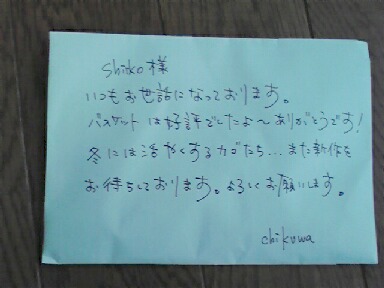 shiko様
いつもお世話になっております。
バスケットは好評でしたよ〜ありがとうです!
冬には活やくするカゴたち...また新作を
お待ちしております。よろしくお願いします。
chikuwa